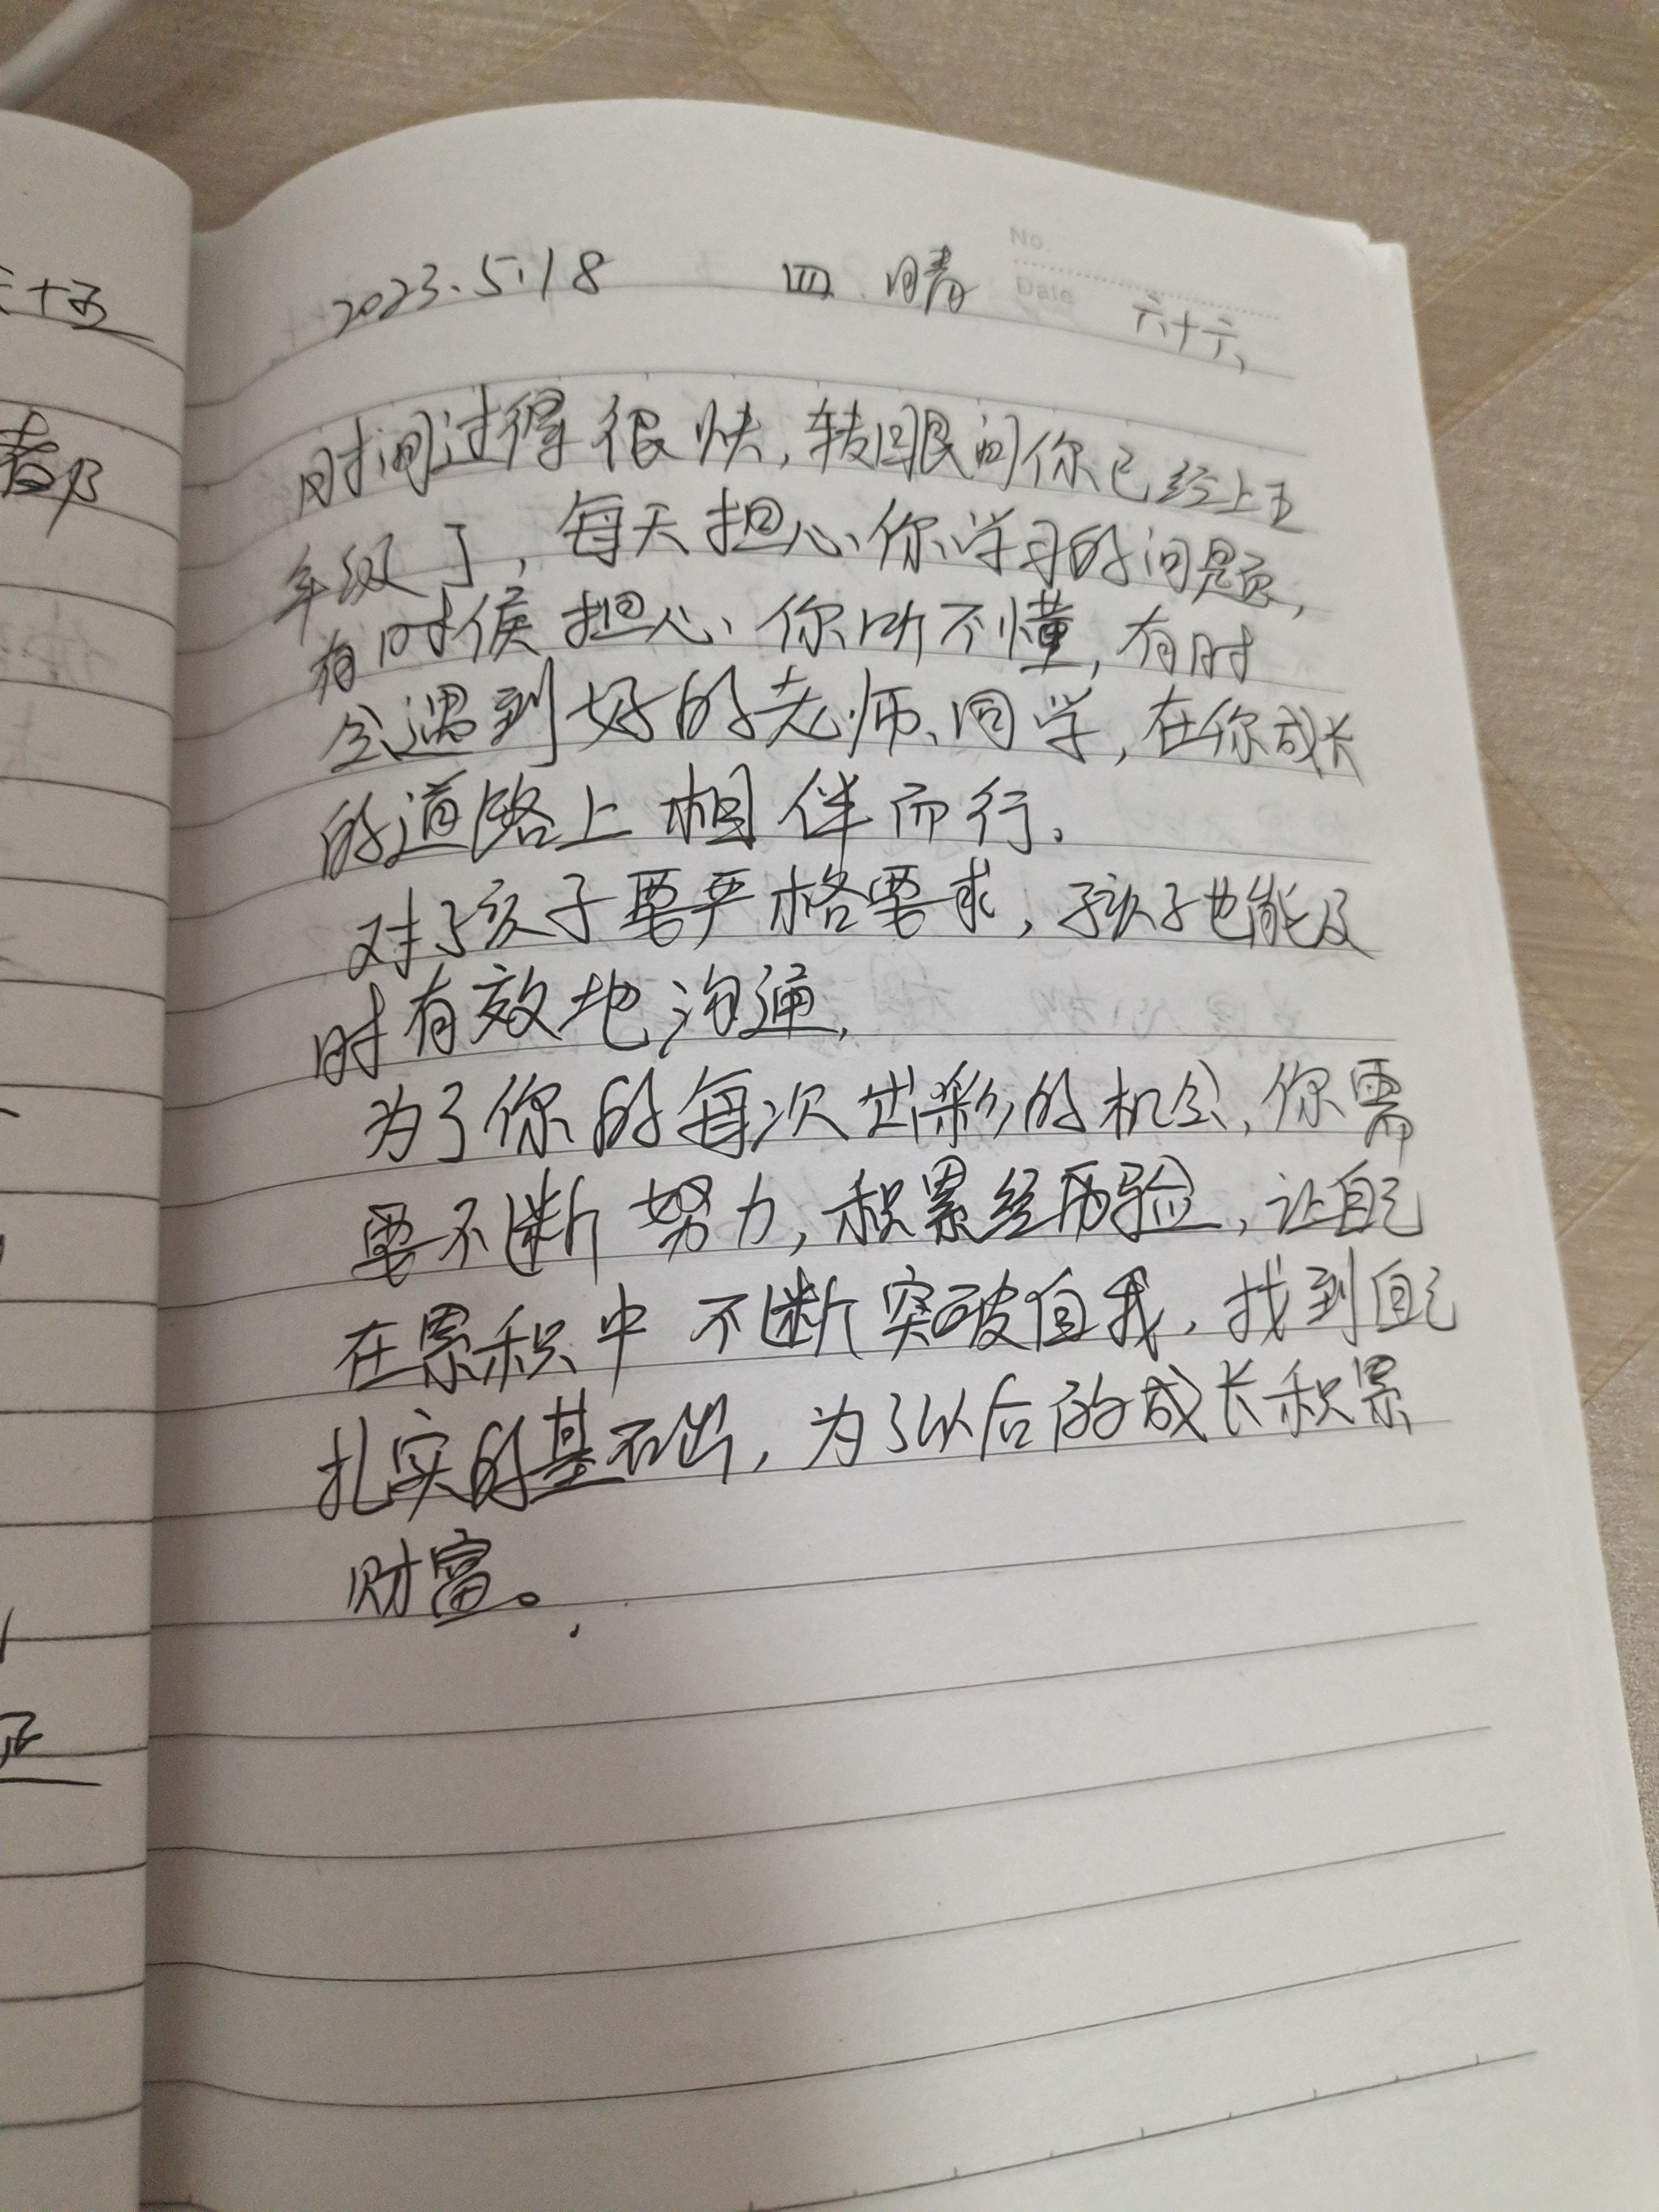 2023.5.18 四 晴 六十六、
No.
Date
时间过得很快,转眼间你已经上五
年级了,每天担心你学习的问题,
有时候担心你听不懂,有时
会遇到好的老师、同学,在你成长
的道路上相伴而行.
对孩子要严格要求,孩子也能及
时有效地沟通,
为了你的每次出彩的机会,你需
要不断努力,积累经历验,让自己
在累积中不断突破自我,找到自己
扎实的基础,为了以后的成长积累
财富。
十五
都